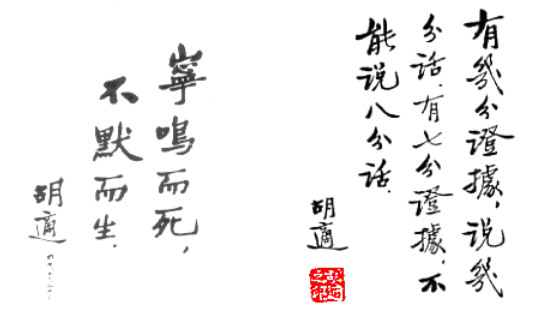 有幾分證據，说幾
分话．有七分證據，不
能说八分话．
胡適
寧鳴而死，
不默而生．
胡適